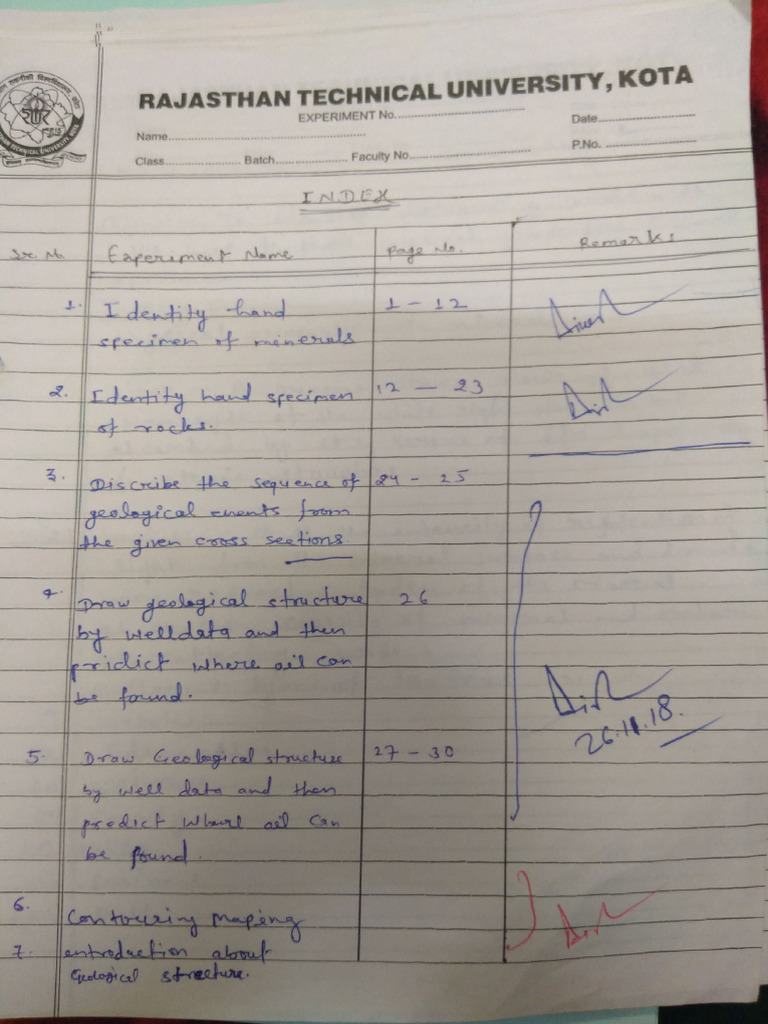 RAJASTHAN TECHNICAL UNIVERSITY, KOTA
EXPERIMENT No.
Date
Name
P.No.
Class Batch Faculty No
INDEX
Sr. No. Experiment Name Page No. Remarks
1. Identity hand 1 - 12
specimen of minerals
2. Identity hand specimen 12 - 23
of rocks.
3. Discribe the sequence of 24 - 25
geological events from
the given cross sections
4. Draw geological structure 26
by welldata and then
pridict where oil can
be found.
26.11.18.
5. Draw Geological structure 27 - 30
by well data and then
predict where oil can
be found.
6. Contouring Maping
7. entroduction about
Geological structure.